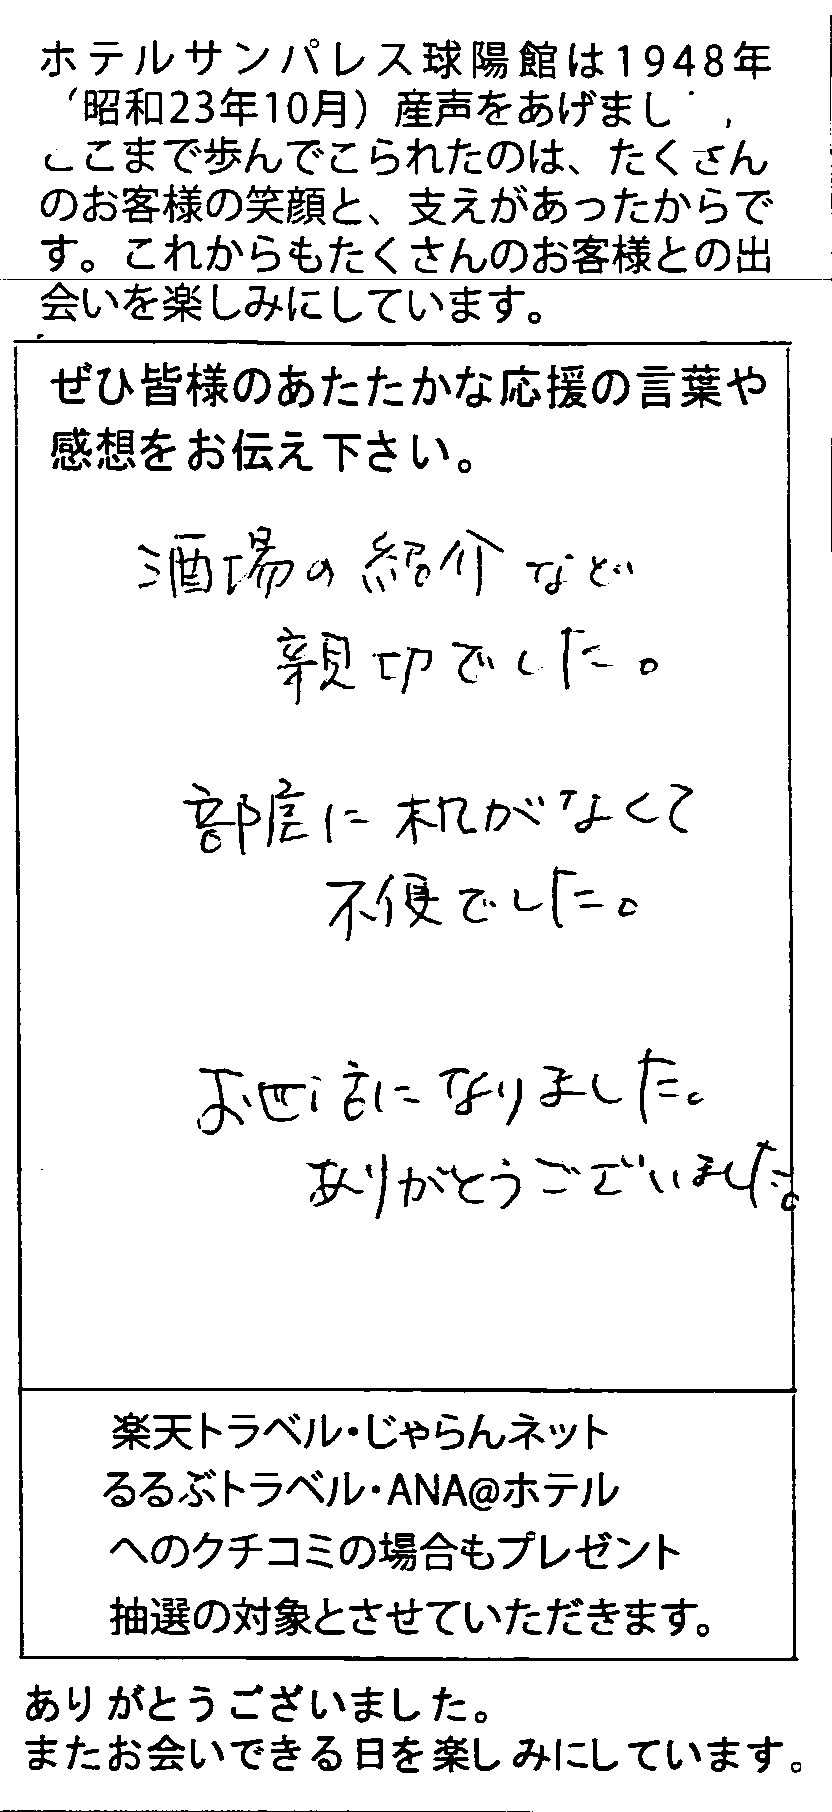 ホテルサンパレス球陽館は1948年
(昭和23年10月)産声をあげまし
ここまで歩んでこられたのは、たくさん
のお客様の笑顔と、支えがあったからで
す。これからもたくさんのお客様との出
会いを楽しみにしています。
ぜひ皆様のあたたかな応援の言葉や
感想をお伝え下さい。
酒場の紹介など
親切でした。
部屋に机がなくて
不便でした。
お世話になりました。
ありがとうございました。
楽天トラベル・じゃらんネット
るるぶトラベル・ANA@ホテル
へのクチコミの場合もプレゼント
抽選の対象とさせていただきます。
ありがとうございました。
またお会いできる日を楽しみにしています。